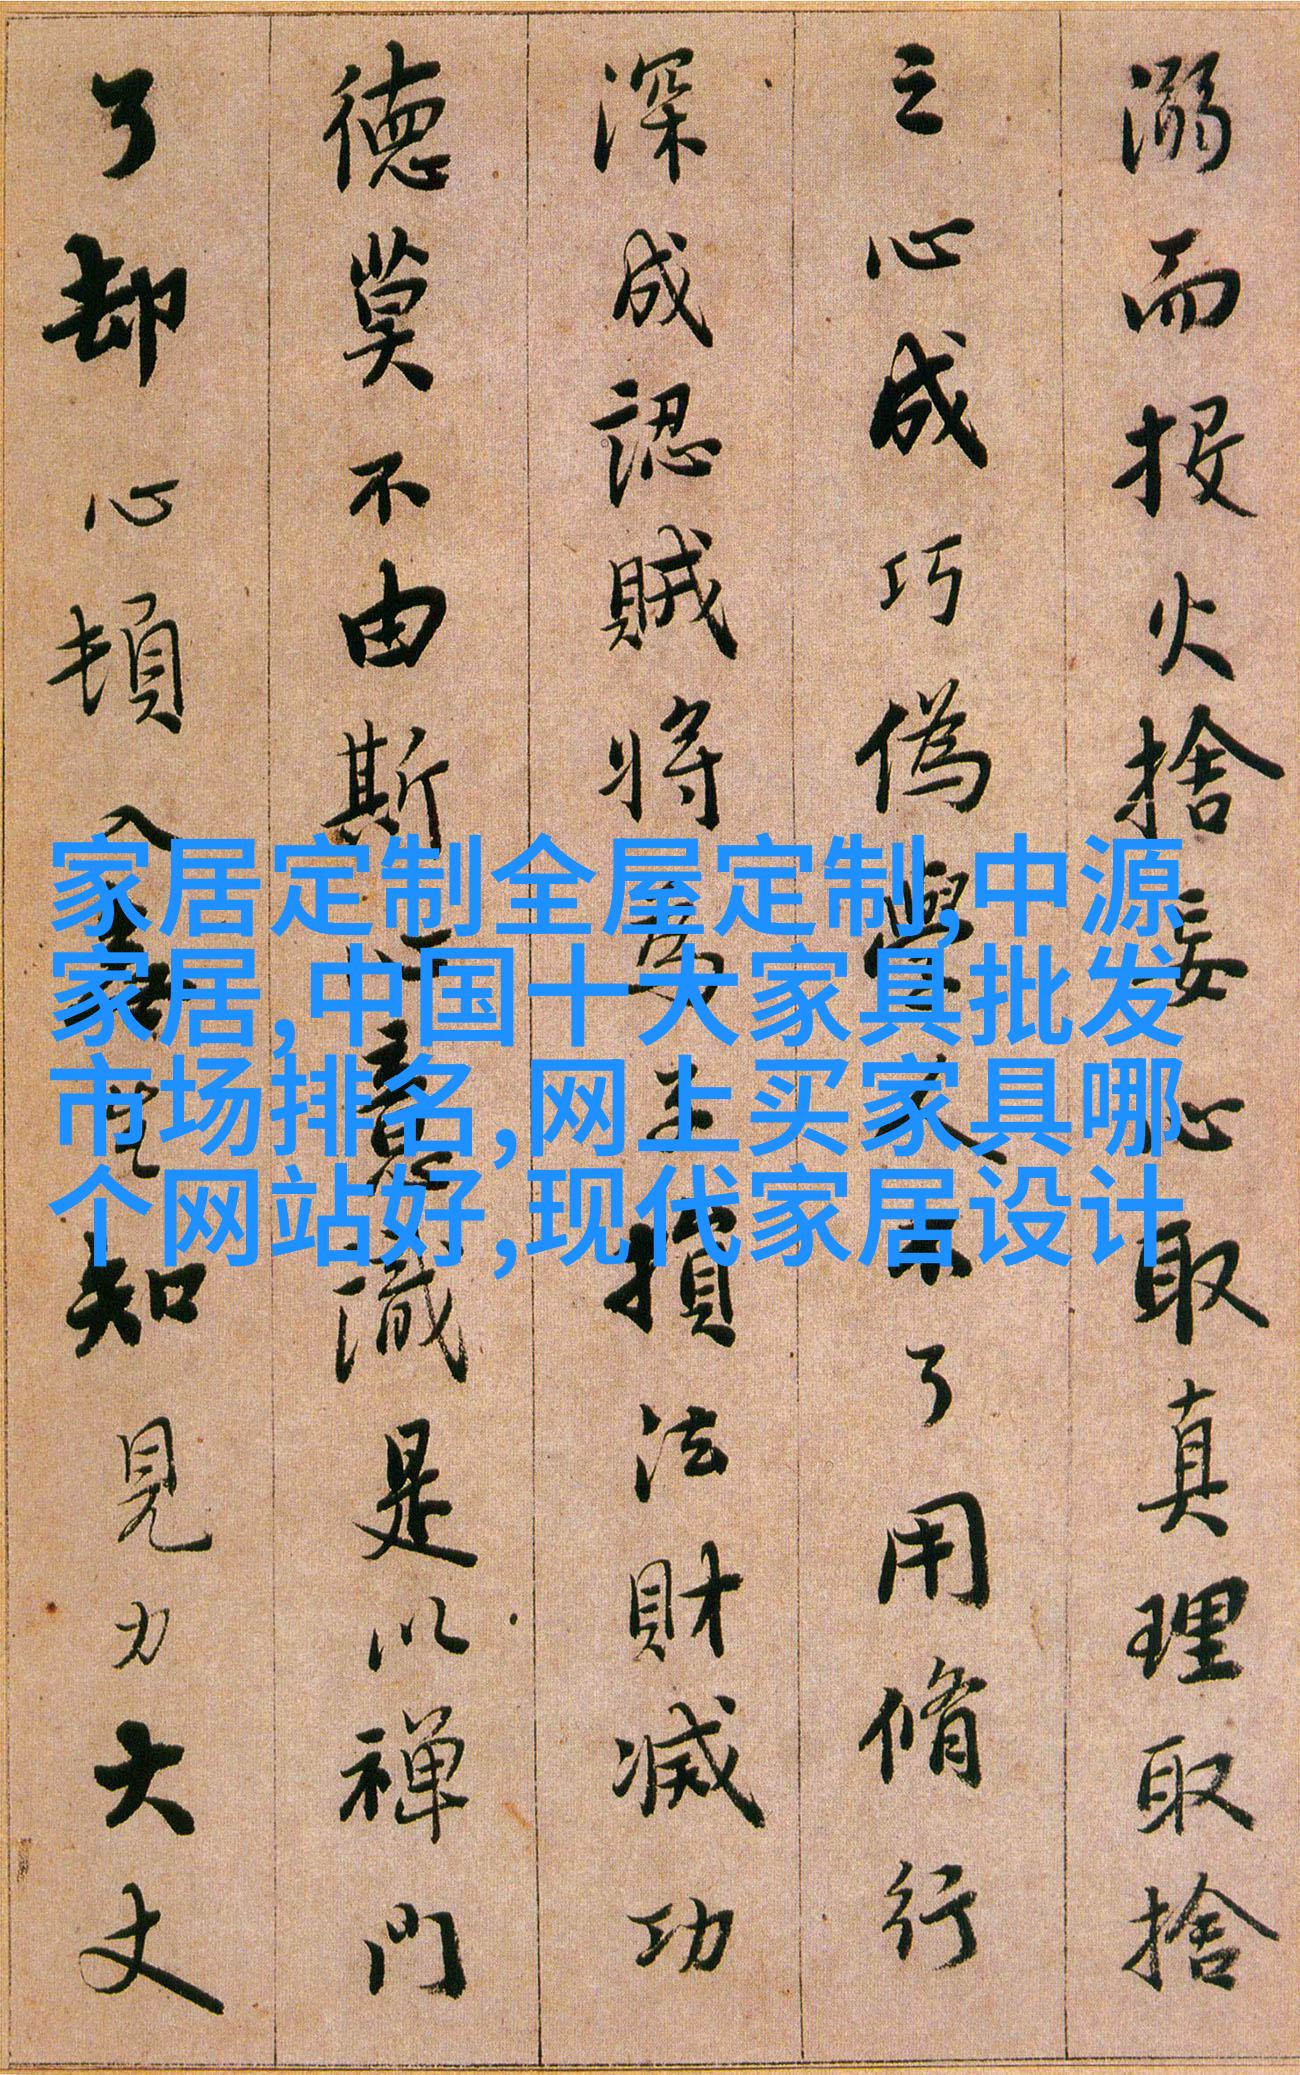 溺而投火捨妄心取真理取捨
之心成巧偽學人不了用脩行
深成認賊將為子損法財滅功
德莫不由斯心意識是以禪門
了却心頓入無生知見力大丈
家居定制全屋定制,中源
家居,中国十大家具批发
市场排名,网上买家具哪
个网站好,现代家居设计